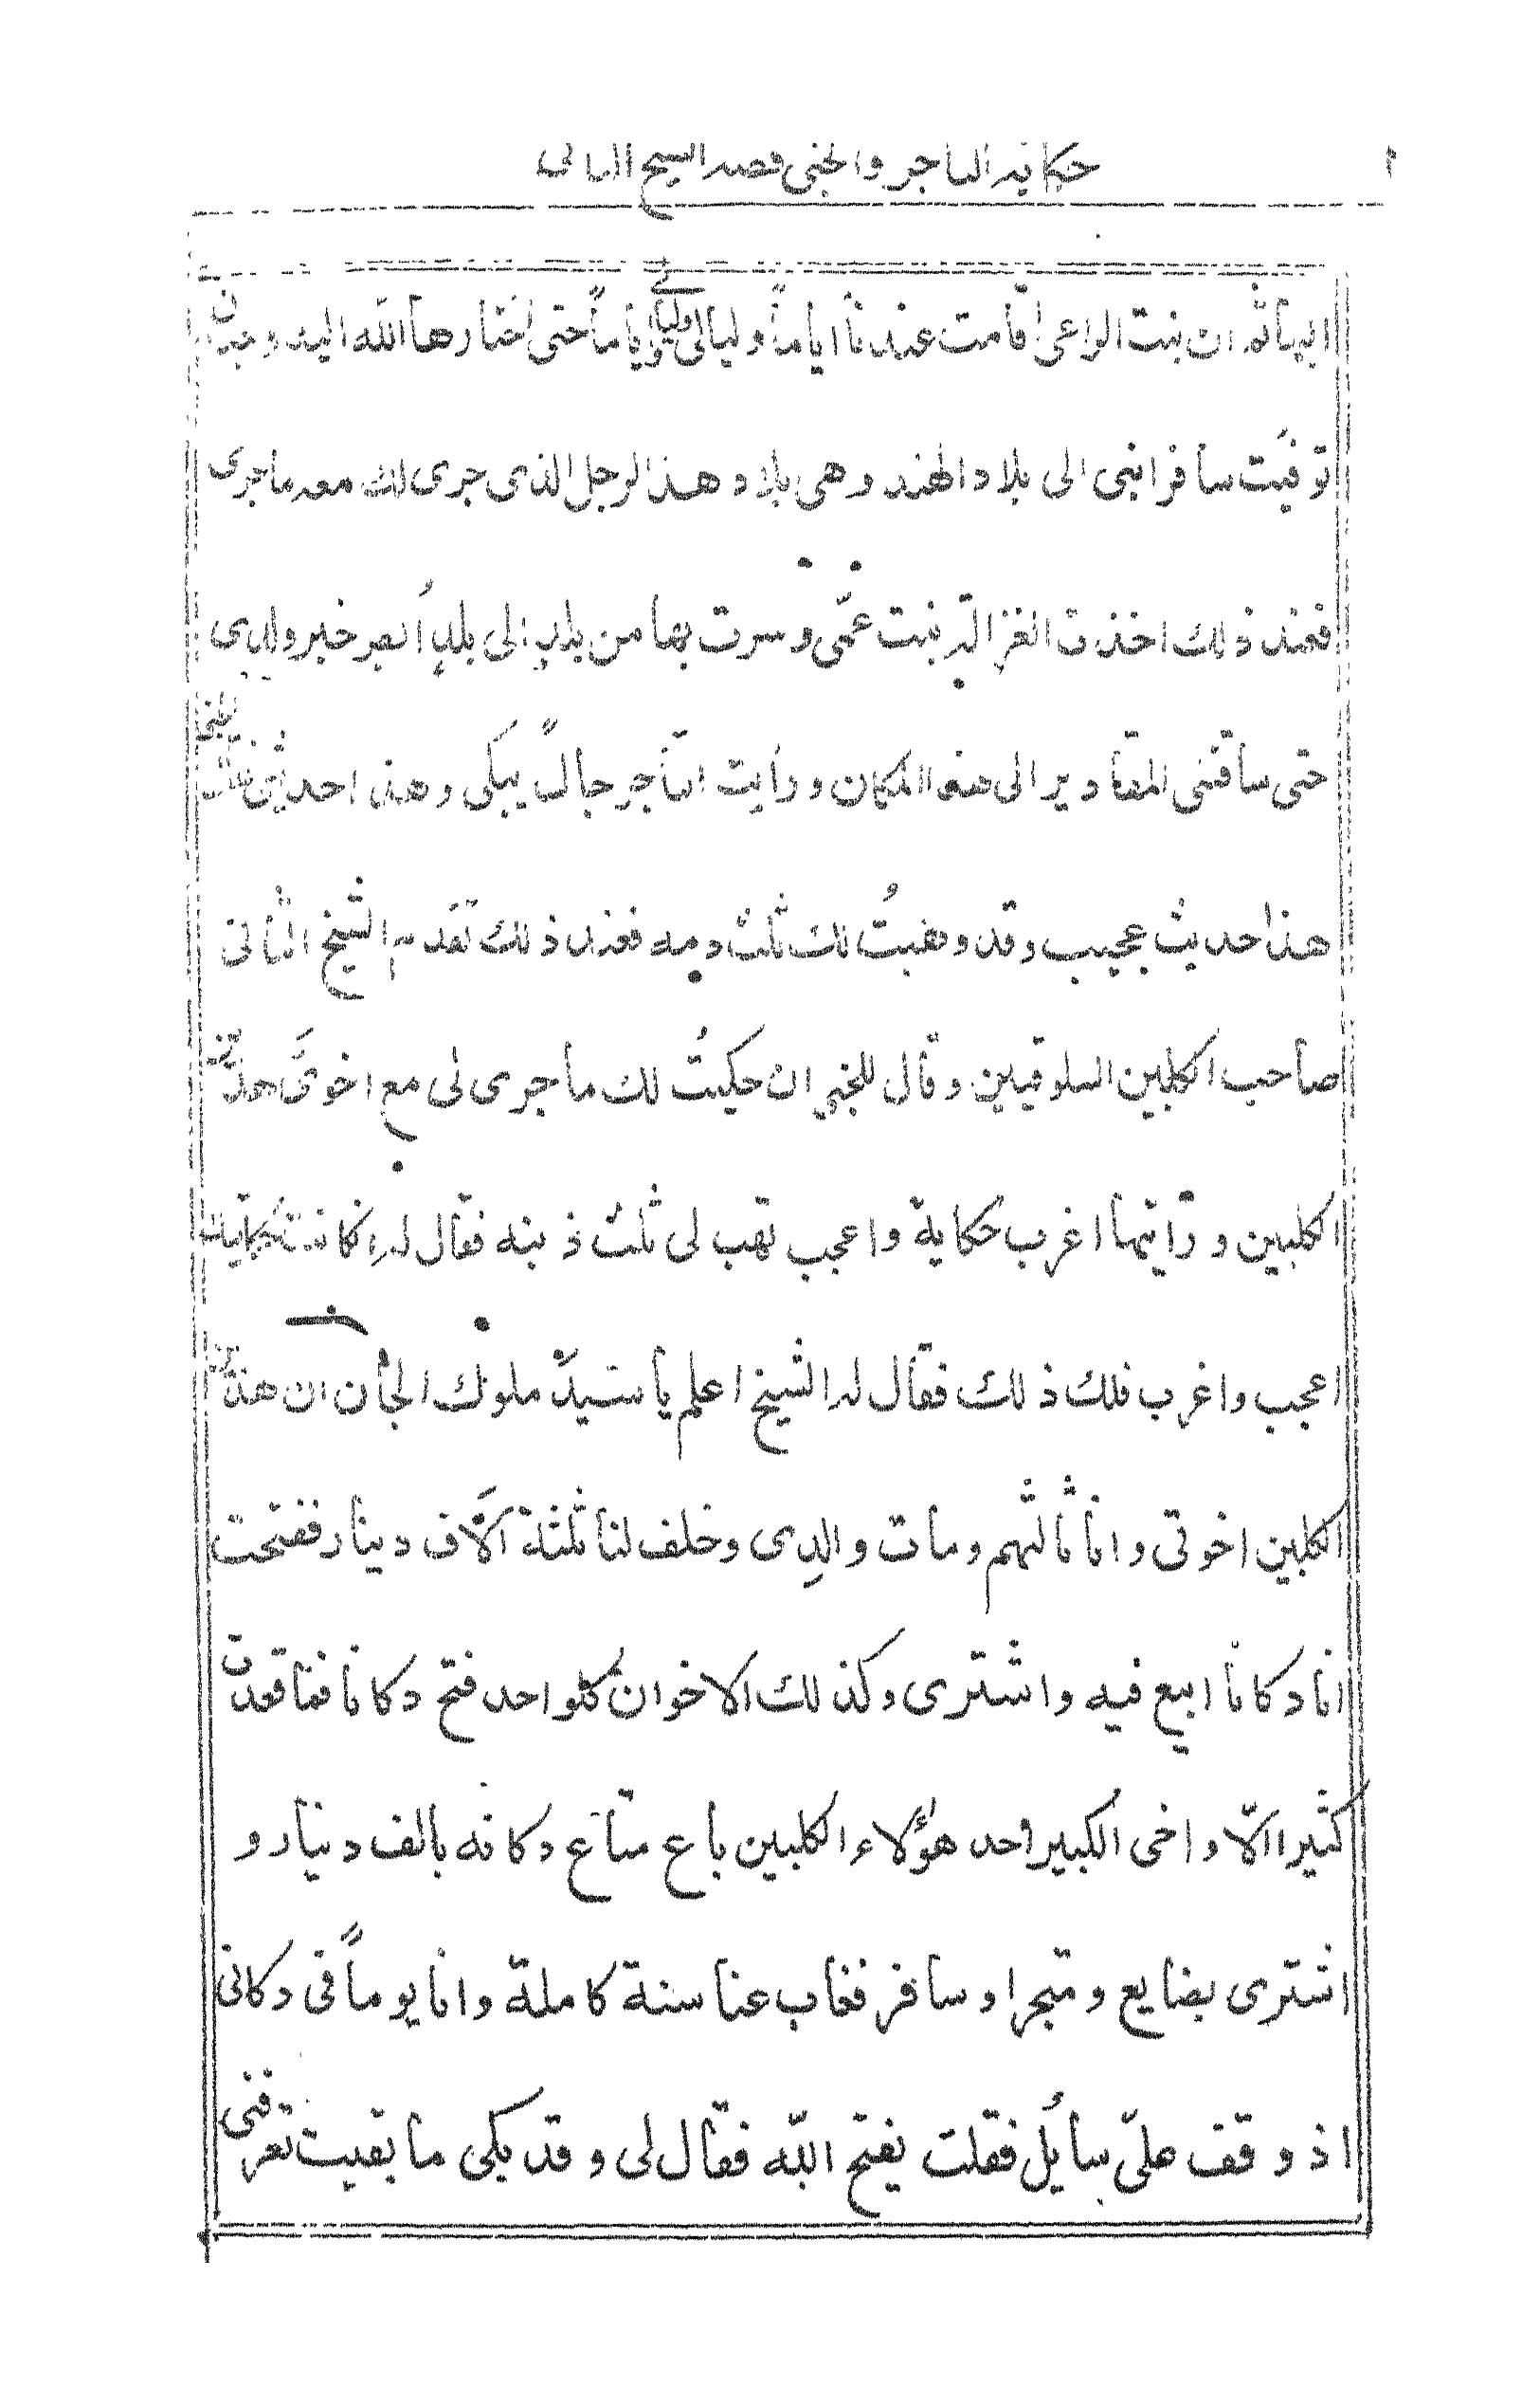 حكاية التاجر والجنى قصه الشيخ الثانى
اليها ثم ان بنت الراعى اقامت عندنا اياماً وليالى واياماً حتى اختارها الله اليه وحين
توفيت سافر ابنى الى بلاد الهند وهى بلاد هذا الرجل الذى جرى لك معه ماجرى
فعند ذلك اخذت الغزاله بنت عمّى وسرت بها من بلدٍ الى بلدٍ اُبصر خبر ولدى
حتى ساقتنى المقادير الى هذه المكان ورأيت التاجر جالساً يبكى وهذا حديثى فقال الجنى
هذا حديث عجيب وقد وهبتُ لك ثلث دمه فعند ذلك تقدم الشيخ الثانى
صاحب الكلبين السلوقيين وقال للجنى ان حكيتُ لك ماجرى لى مع اخوتَى هذين
الكلبين ورأيتها اغرب حكاية واعجب تهب لى ثلث ذنبه فقال له ان كانت حكايتك
اعجب واغرب فلك ذلك فقال له الشيخ اعلم يا سيّد ملوك الجان ان هذين
الكلبين اخوتى وانا ثالثهم ومات والدِى وخلف لنا ثلثة آلاف دينار ففتحت
انا دكانا ابيع فيه واشترى وكذلك الاخوان كلواحد فتح دكانا فما قعدت
كثيرا الّا واخى الكبير احد هؤلاء الكلبين باع متاع دكانه بالف دينار و
اشترى بضايع ومتجرا وسافر فغاب عنا سنة كاملة وانا يوماً فى دكانى
اذ وقف علىّ سايُل فقلت يفتح الله فقال لى وقد بكى ما بقيت تعرفنى